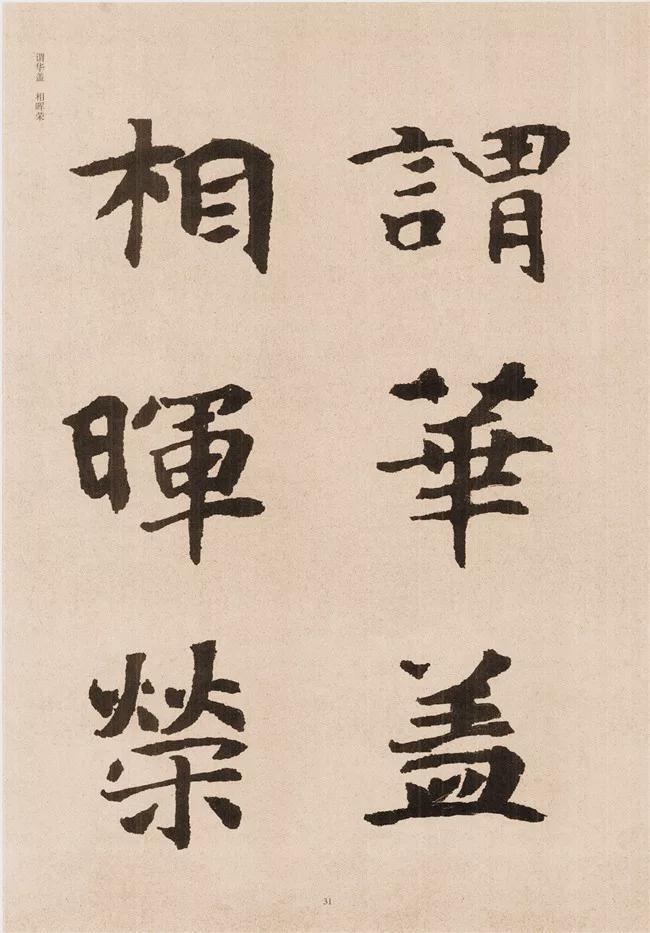 謂華盖
相暉榮
谓华盖 相晖荣
31